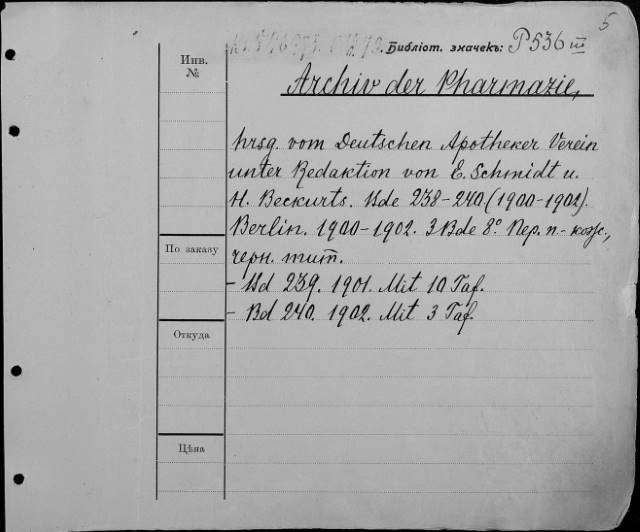 5
Библіот. значекъ: P536 III
Инв.
№
Archiv der Pharmazie,
hrsg. vom Deutschen Apotheker Verein
unter Redaktion von E. Schmidt u.
H. Beckurts. Bde 238-240. (1900-1902).
Berlin. 1900-1902. 3 Bde 8.° Пер. п.-кож.,
черн. тит.
По заказу
- Bd 239. 1901. Mit 10 Taf.
- Bd 240. 1902. Mit 3 Taf.
Откуда
Цѣна